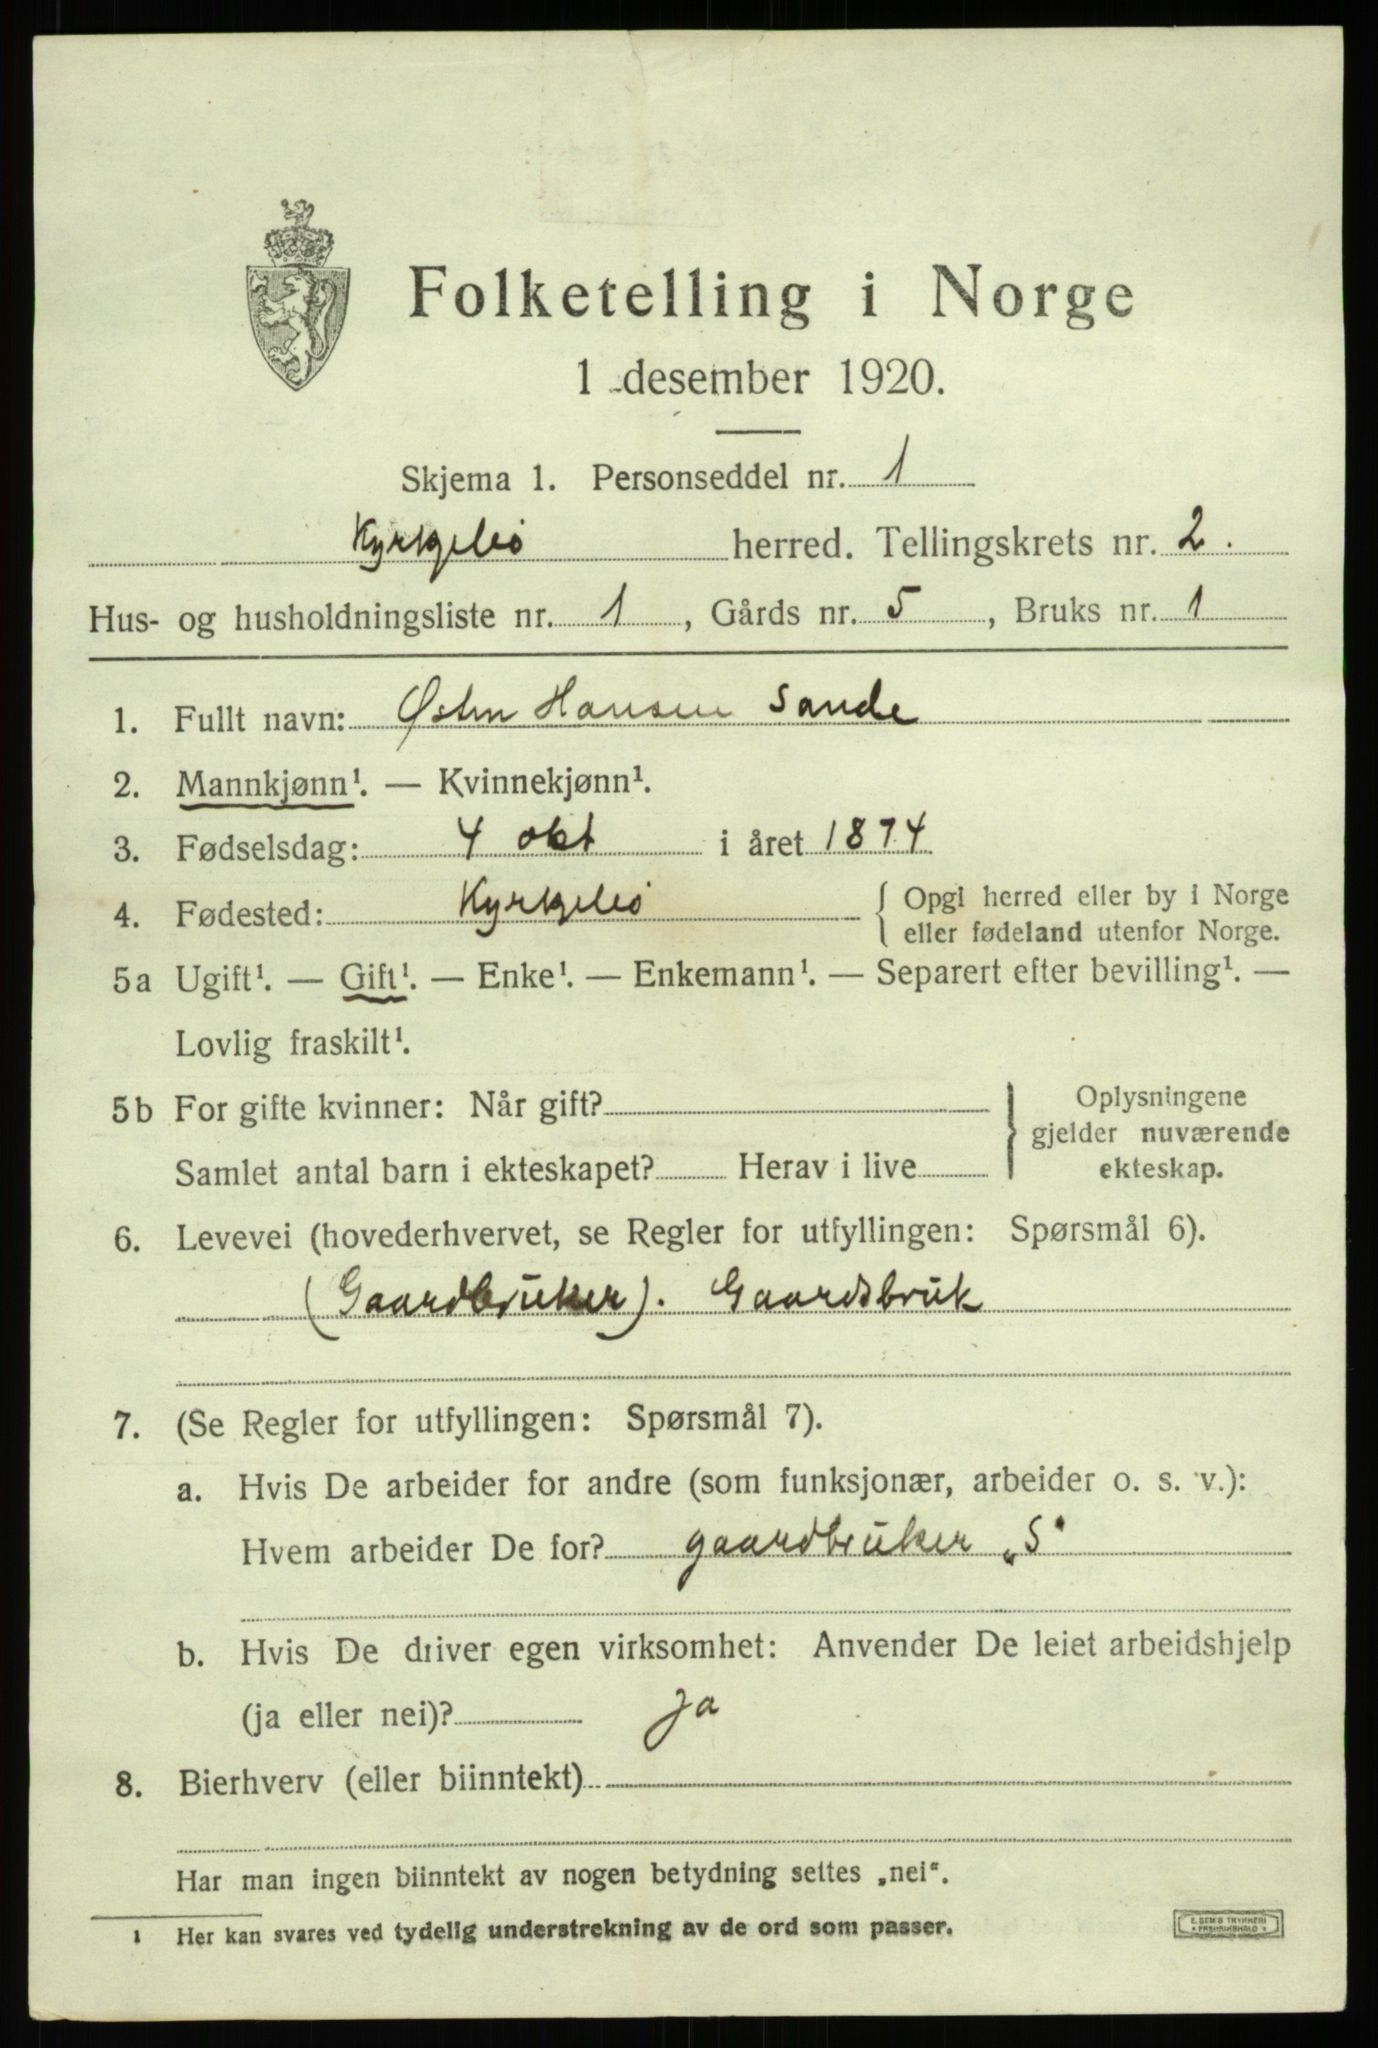 Folketelling i Norge
1 desember 1920.
Skjema 1. Personseddel nr. 1
Kyrkjebø herred. Tellingskrets nr. 2.
Hus- og husholdningsliste nr. 1, Gårds nr. 5, Bruks nr. 1
1. Fullt navn: Østen Hansen Sande
2. Mannkjønn¹. — Kvinnekjønn¹.
3. Fødselsdag: 4 okt i året 1874
4. Fødested: Kyrkjebø { Opgi herred eller by i Norge
eller fødeland utenfor Norge.
5a Ugift¹. — Gift¹. — Enke¹. — Enkemann¹. — Separert efter bevilling¹. —
Lovlig fraskilt¹.
5b For gifte kvinner: Når gift? } Oplysningene
gjelder nuværende
Samlet antal barn i ekteskapet? Herav i live ekteskap.
6. Levevei (hovederhvervet, se Regler for utfyllingen: Spørsmål 6).
(Gaardbruker). Gaardsbruk
7. (Se Regler for utfyllingen: Spørsmål 7).
a. Hvis De arbeider for andre (som funksjonær, arbeider o. s. v.):
Hvem arbeider De for? gaardbruker „S"
b. Hvis De driver egen virksomhet: Anvender De leiet arbeidshjelp
(ja eller nei)? ja
8. Bierhverv (eller biinntekt)
Har man ingen biinntekt av nogen betydning settes „nei“.
1 Her kan svares ved tydelig understrekning av de ord som passer.
E. SEM'S TRYKKERI